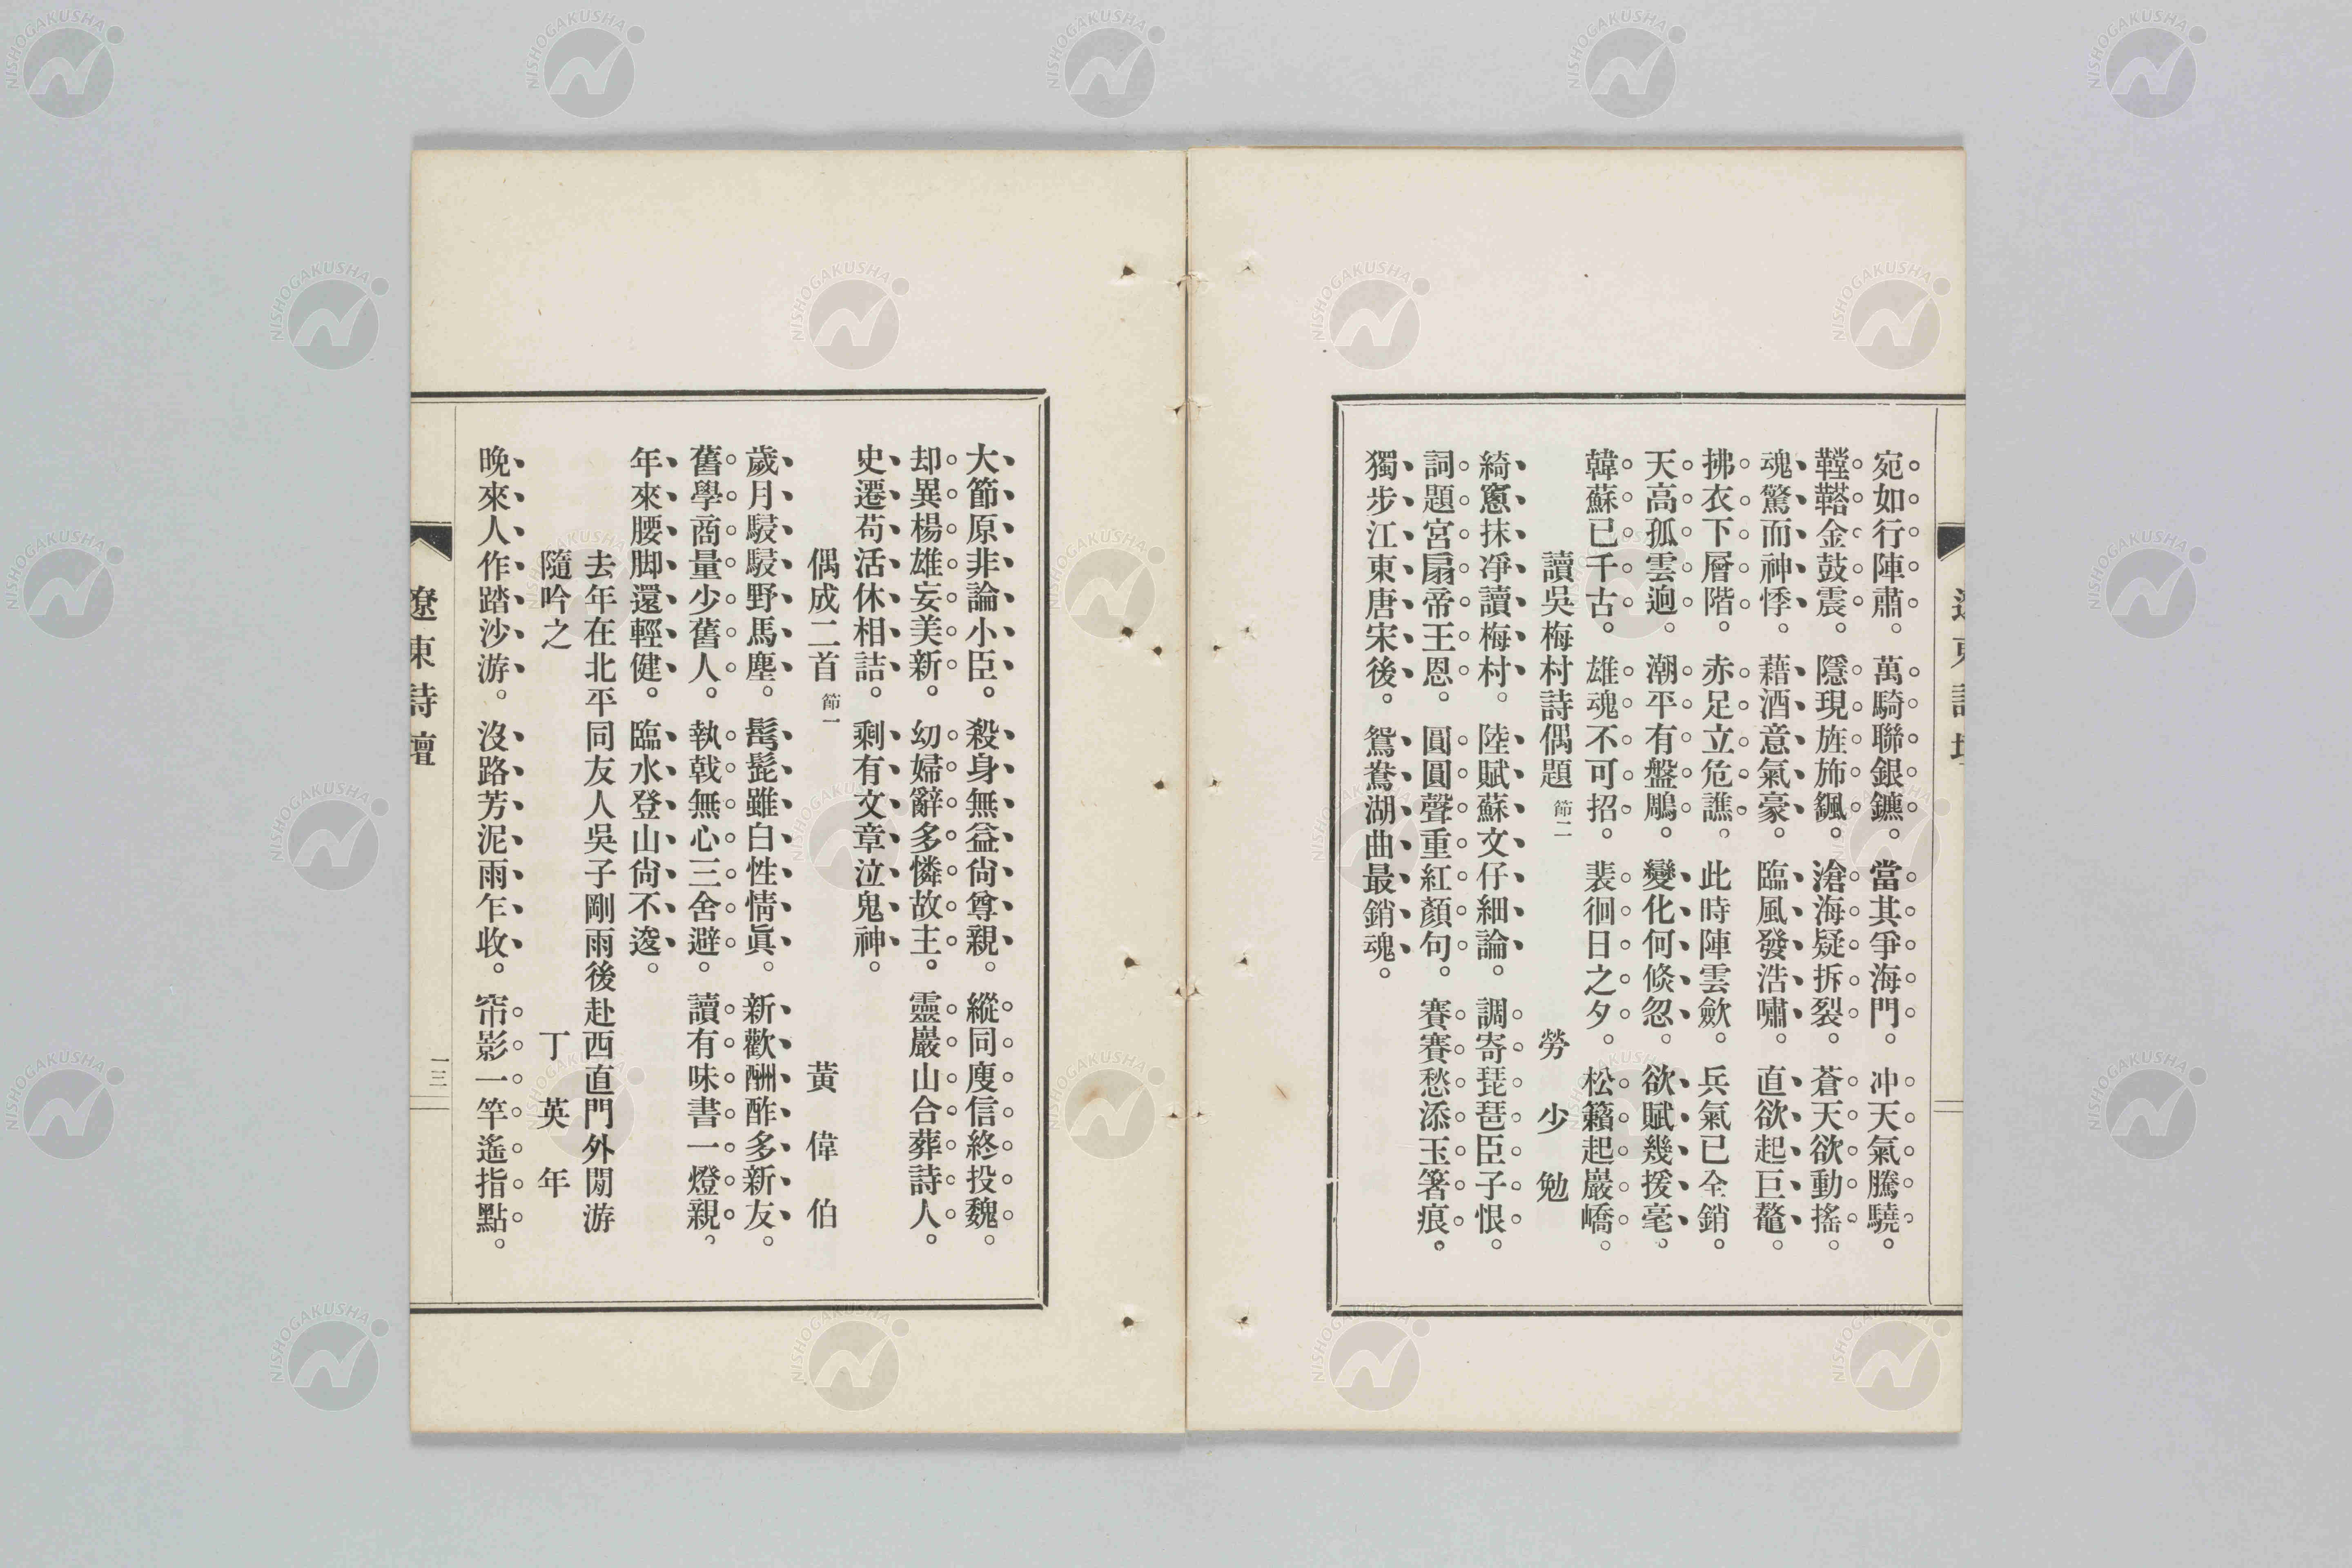 宛如行陣肅。萬騎聯銀鑣。當其爭海門。冲天氣騰驍。
鞺鞳金鼓震。隱現旌斾颻。滄海疑拆裂。蒼天欲動搖。
魂驚而神悸。藉酒意氣豪。臨風發浩嘯。直欲起巨鼇。
拂衣下層階。赤足立危譙。此時陣雲歛。兵氣已全銷。
天高孤雲逈。潮平有盤鵰。變化何倏忽。欲賦幾援毫。
韓蘇已千古。雄魂不可招。裴徊日之夕。松籟起巖嶠。
讀吳梅村詩偶題 節二 勞少勉
綺窻抹凈讀梅村。陸賦蘇文仔細論。調寄琵琶臣子恨。
詞題宮扇帝王恩。圓圓聲重紅顏句。賽賽愁添玉箸痕。
獨步江東唐宋後。鴛鴦湖曲最銷魂。
大節原非論小臣。殺身無益尙尊親。縱同庾信終投魏。
却異楊雄妄美新。幼婦辭多憐故主。靈巖山合葬詩人。
史遷苟活休相詰。剩有文章泣鬼神。
偶成二首 節一 黃偉伯
歲月駸駸野馬塵。髩髭雖白性情眞。新歡酬酢多新友。
舊學商量少舊人。執戟無心三舍避。讀有味書一燈親。
年來腰脚還輕健。臨水登山尙不逡。
去年在北平同友人吳子剛雨後赴西直門外閒游
隨吟之 丁英年
晚來人作踏沙游。沒路芳泥雨乍收。帘影一竿遙指點。
遼東詩壇
一三
NISHOGAKUSHA